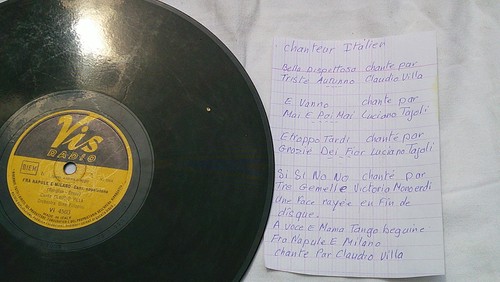 Vis
RADIO
BIEM
FRA NAPULE E MILANO
VI 4503
MADE IN ITALY
chanteur Italien
Bella Dispettosa chante par
Triste Autunno Claudio Villa
E Vanno chante par
Mai E Poi Mai Luciano Tajoli
E troppo Tardi chante par
Grazie Dei Fior Luciano Tajoli
Si. Si. No. No chanté par
Tre Gemelle Victorio Monserdi
Une face rayée en Fin de
disque.
A voce E Mama Tango beguine
Fra Napule E Milano
chante Par Claudio Villa